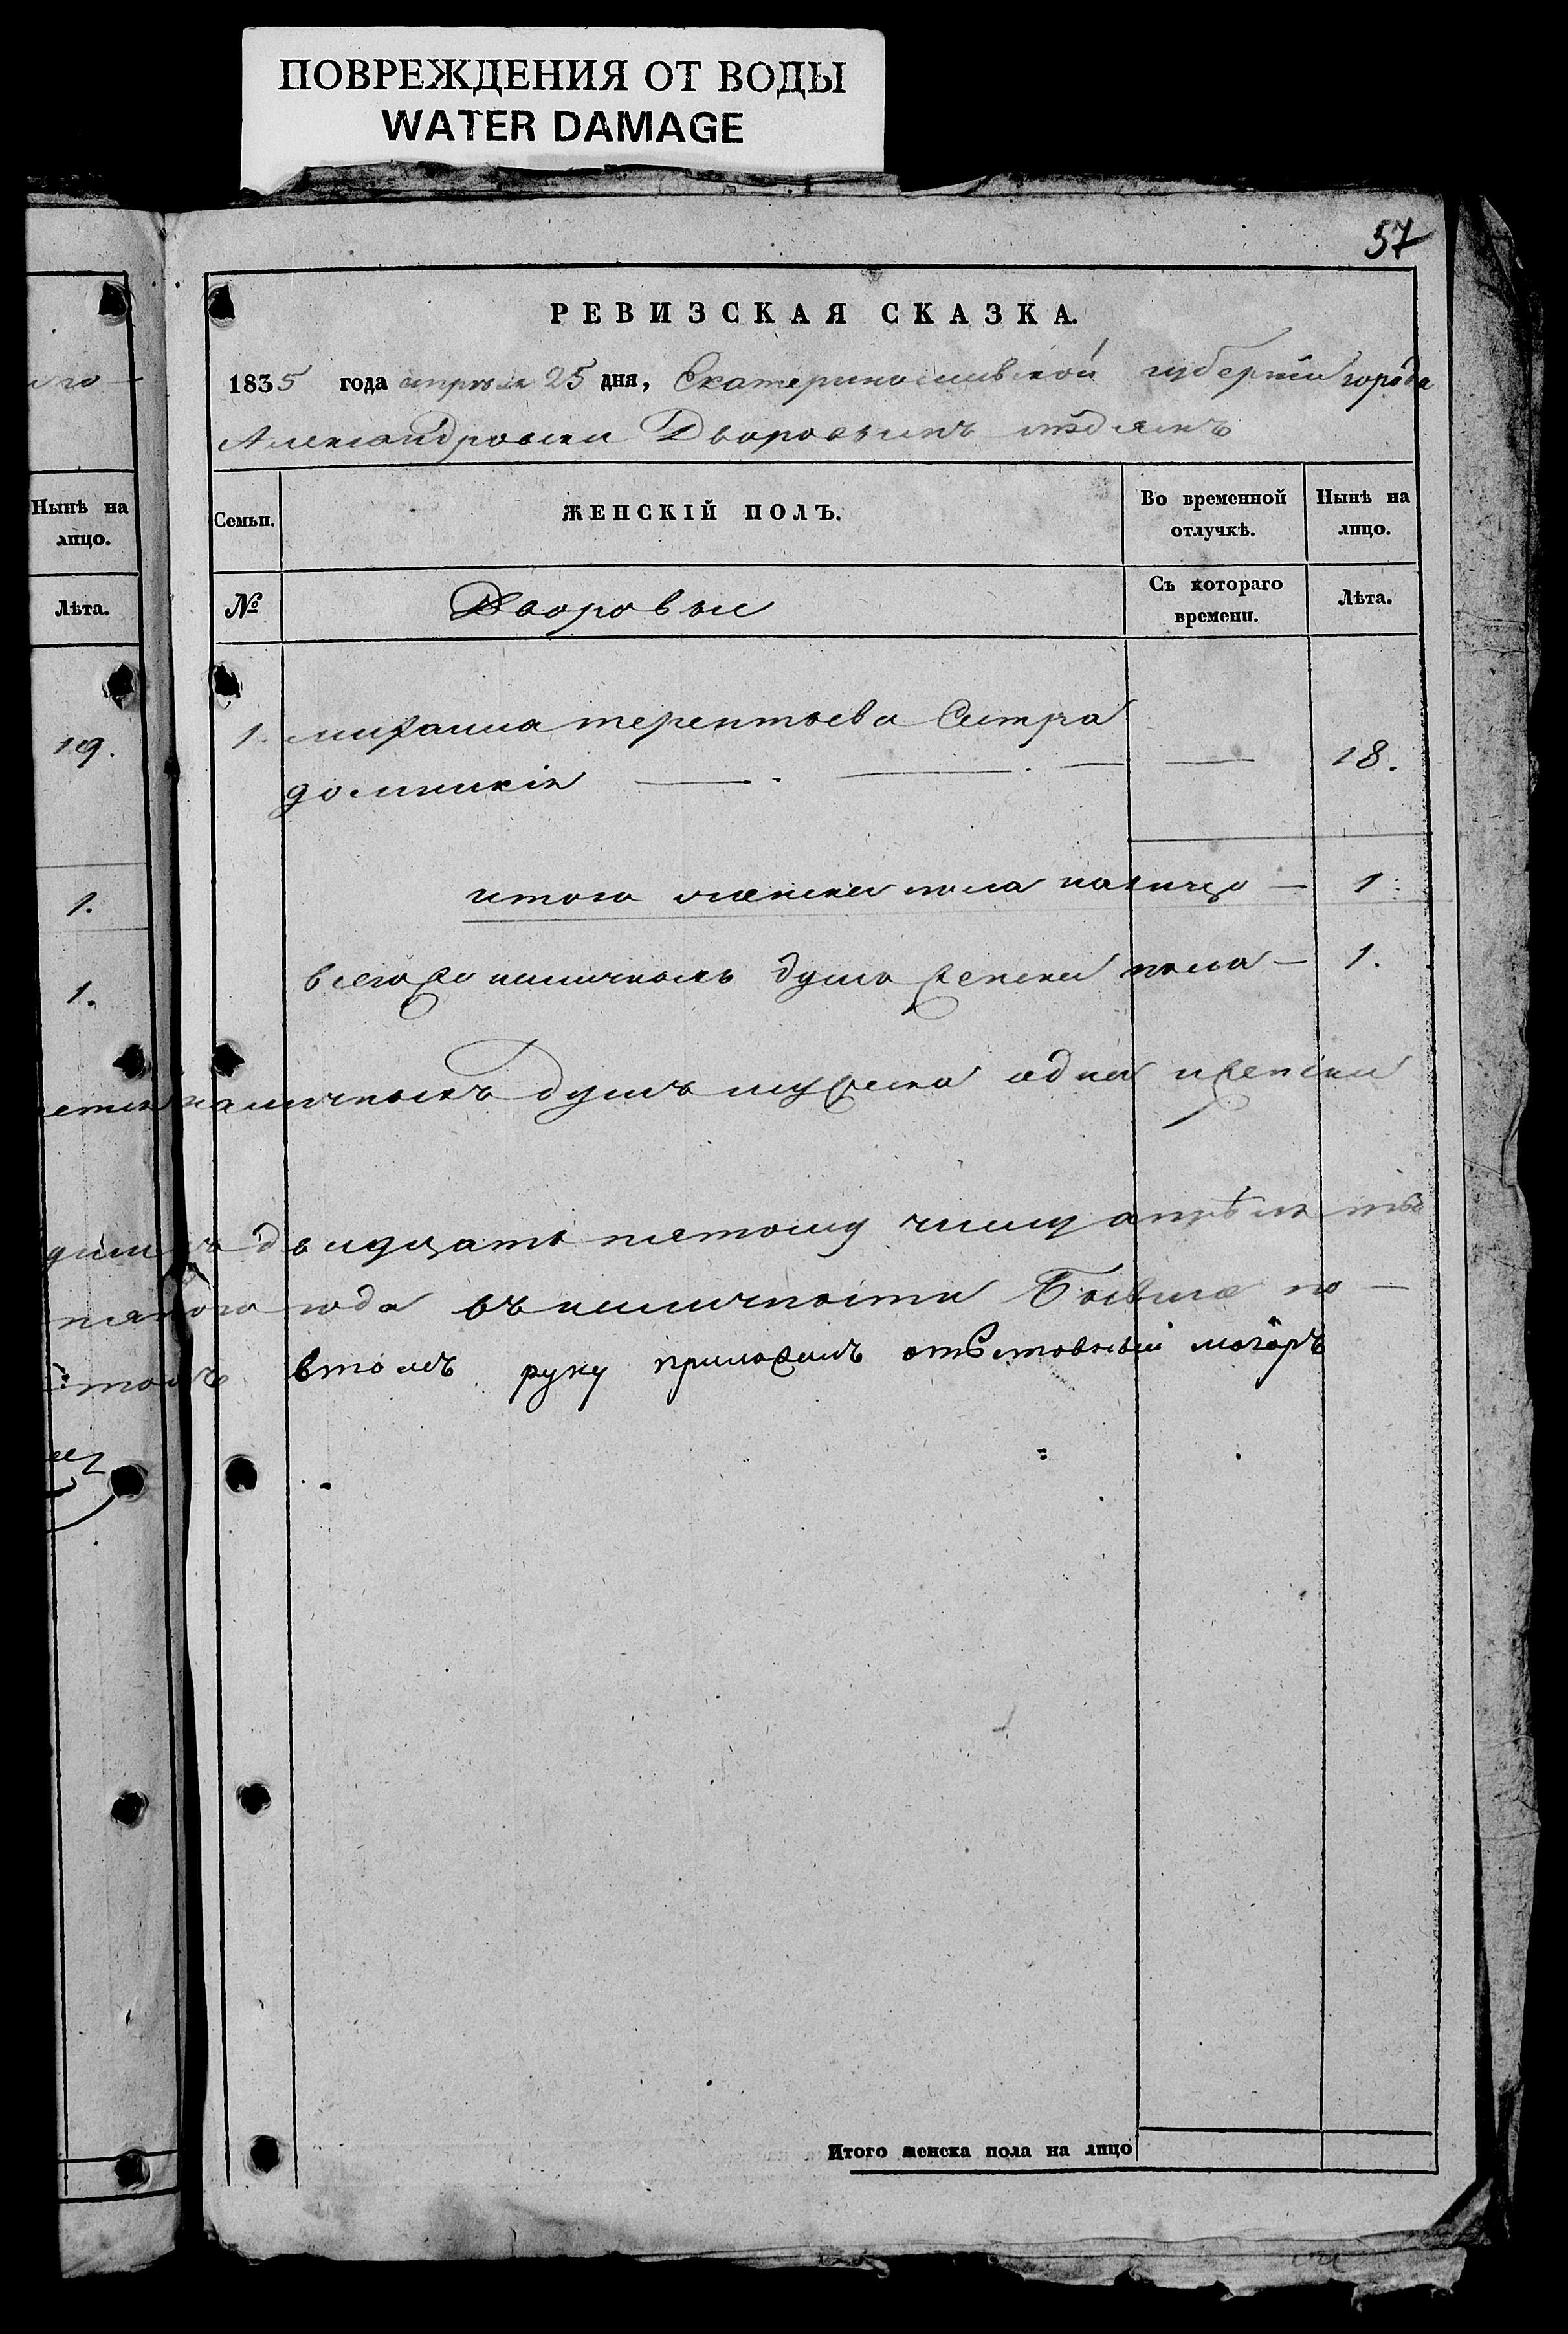 ПОВРЕЖДЕНИЯ ОТ ВОДЫ
WATER DAMAGE
57
РЕВИЗСКАЯ СКАЗКА.
1835 года апреля 25 дня, Екатеринославской губернии города
Александровска Дворовымъ людямъ
Нынѣ на лицо.
Лѣта.
19.
1.
1.
Семьи.
ЖЕНСКІЙ ПОЛЪ.
Во временной отлучкѣ.
Нынѣ на лицо.
№
Дворовыя
Съ котораго времени.
Лѣта.
1. михаила терентьева Сестра
— 18.
итого женска пола налицо — 1.
всего же наличныхъ душъ женска пола — 1.
наличныхъ душъ мужеска одна и женска
двадцать пятому числу апрѣля
года въ наличности Бывше по —
втомъ руку приложилъ отставный маіоръ
Итого женска пола на лицо